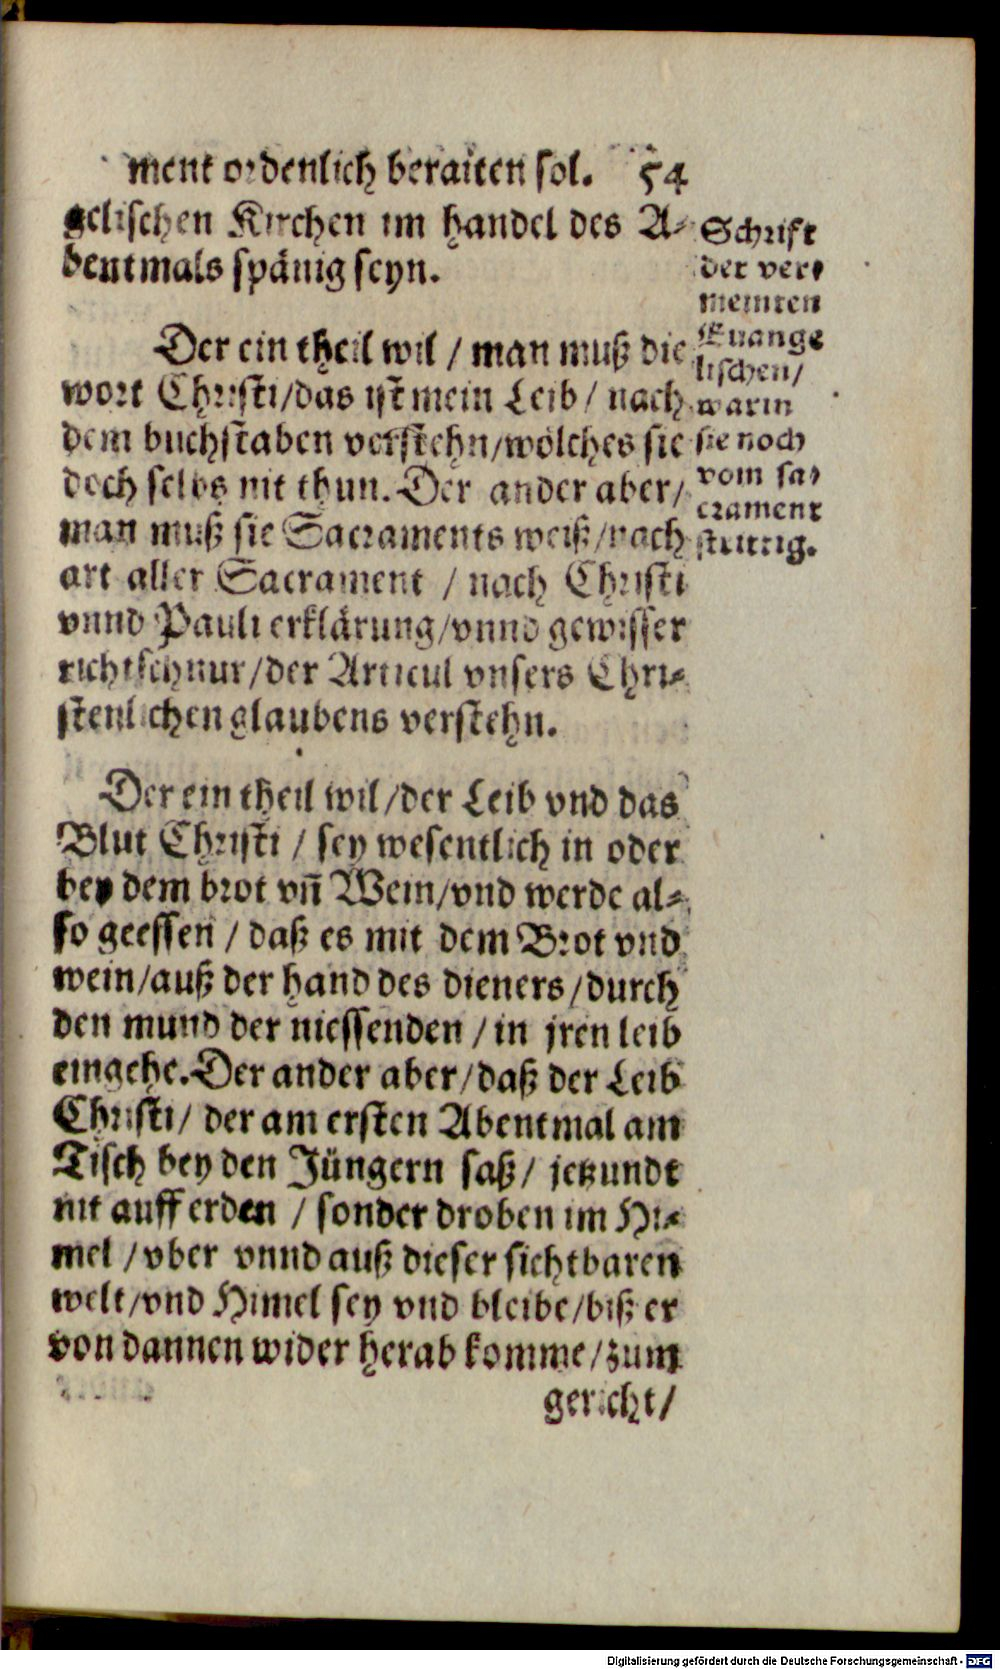 ment ordenlich beraiten sol. 54
gelischen Kirchen im handel des A⸗
bentmals spänig seyn.
Der ein theil wil / man muß die
wort Christi/das ist mein Leib / nach
dem buchstaben verstehn/wölches sie
doch selbs nit thun. Der ander aber/
man muß sie Sacraments weiß/nach
art aller Sacrament / nach Christi
vnnd Pauli erklärung/vnnd gewisser
richtschnur/der Articul vnsers Chri⸗
stenlichen glaubens verstehn.
Der ein theil wil/der Leib vnd das
Blut Christi / sey wesentlich in oder
bey dem brot vñ Wein/vnd werde al⸗
so geessen / daß es mit dem Brot vnd
wein/auß der hand des dieners/durch
den mund der niessenden / in jren leib
eingehe. Der ander aber/daß der Leib
Christi/ der am ersten Abentmal am
Tisch bey den Jüngern saß/ jetzundt
nit auff erden / sonder droben im Hi⸗
mel /vber vnnd auß dieser sichtbaren
welt/vnd Himel sey vnd bleibe/biß er
von dannen wider herab komme/zum
gericht/
Schrift
der ver⸗
meinten
Euange
lischen/
warin
sie noch
vom sa⸗
crament
strittig.
Digitalisierung gefördert durch die Deutsche Forschungsgemeinschaft - DFG